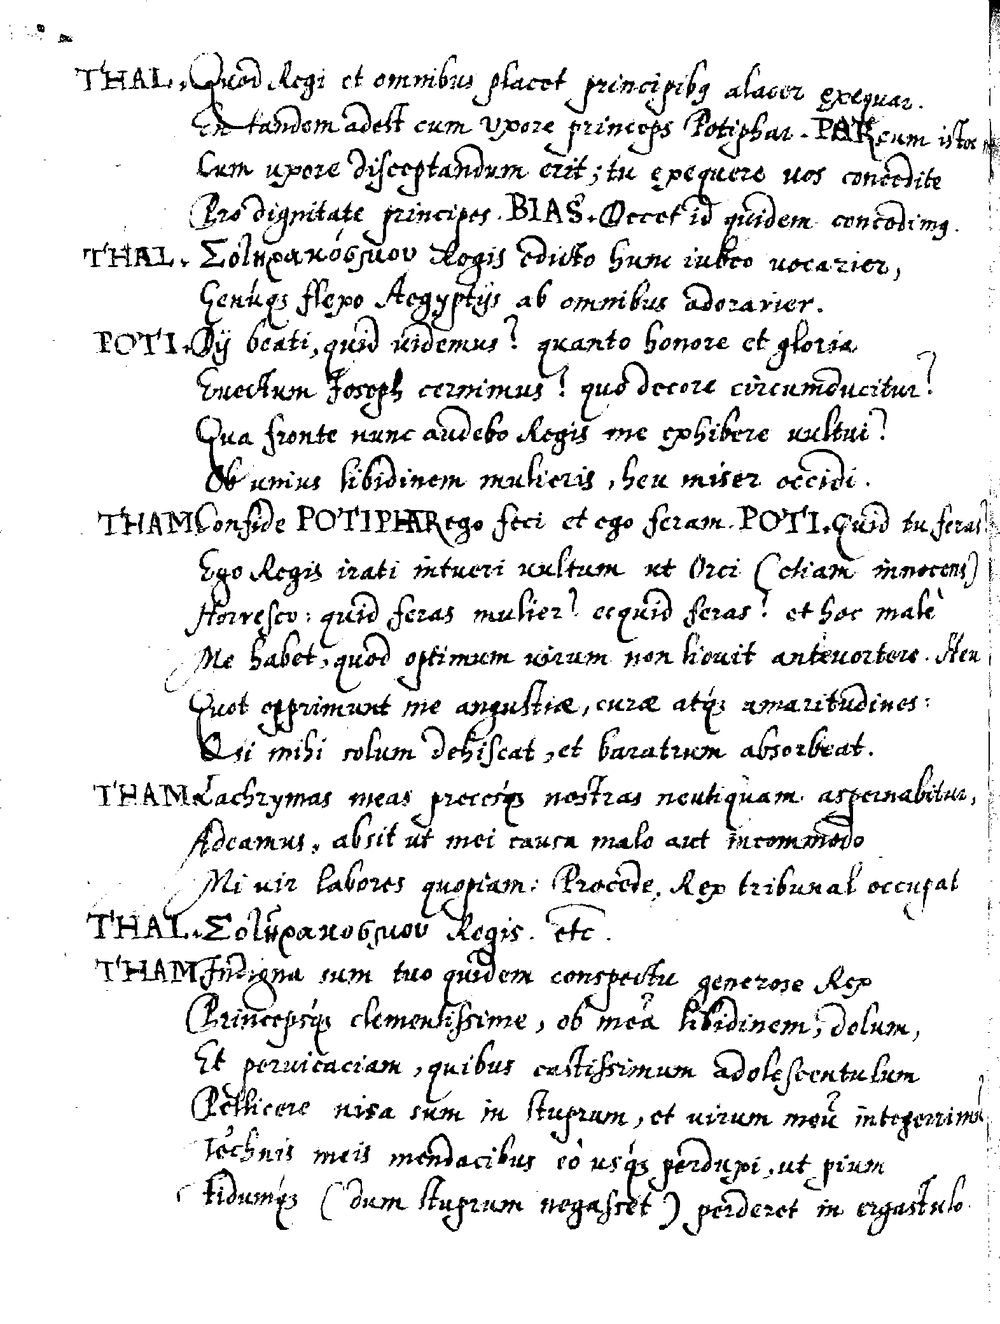 THAL. Quod Regi et omnibus placet principibq alacer exequar.
En tandem adest cum uxore princeps Potiphar. PHAR cum istoc
Cum uxore disceptandum erit; tu exequere uos concedite
Pro dignitate principes. BIAS. Decet id quidem concedimq.
THAL. Regis edicto hunc iubeo uocarier,
Genuq́ꝫ flexo Aegyptijs ab omnibus adorarier.
POTI. Dij beati, quid uidemus? quanto honore et gloria
Euectum Joseph cernimus? quo decore circumducitur?
Qua fronte nunc audebo Regis me exhibere uultui?
Ob unius libidinem mulieris, heu miser occidi.
THAM Confide POTIPHAR ego feci et ego feram. POTI. Quid tu feras?
Ego Regis irati intueri uultum ut Orci (etiam innocens)
Horresco: quid feras mulier? ecquid feras? et hoc malè
Me habet, quod optimum uirum non licuit anteuortere. Heu
Quot opprimunt me angustiæ, curæ atq́ꝫ amaritudines:
Qui mihi solum dehiscat, et baratrum absorbeat.
THAM. Lachrymas meas precesq́ꝫ nostras neutiquam aspernabitur,
Adeamus, absit ut mei causa malo aut incommodo
Mi uir labores quopiam: Procede, Rex tribunal occupat
THAL. Regis. etc.
THAM Indigna sum tuo quidem conspectu generose Rex
Princepsq́ꝫ clementissime, ob meã libidinem, dolum,
Et peruicaciam, quibus castissimum adolescentulum
Pellicere nisa sum in stuprum, et uirum meũ integerrimũ
Technis meis mendacibus eò usq́ꝫ perduxi, ut pium
Fidumq́ꝫ (dum stuprum negasset) perderet in ergastulo.